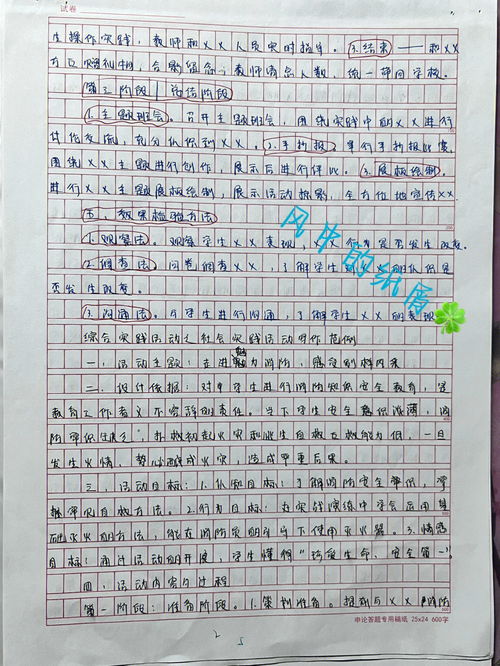 试卷
生操作实践，教师和XX人员实时指导。③结束——和XX
方互赠礼物，合影留念；教师清点人数，统一带回学校。
第三阶段：总结阶段
1.主题班会。召开主题班会，围绕实践中的XX进行
讨论交流，充分认识到XX。2.手抄报。举行手抄报比赛，
围绕XX主题进行创作，展示后进行评比。3.展板绘制。
进行XX主题展板绘制，展示活动掠影，全方位地宣传XX.
五、效果检验方法
1.观察法。观察学生XX表现，XX行为是否发生改变。
2.调查法。问卷调查XX，了解学生对XX的认识是
否发生改变。
3.沟通法。与学生进行沟通，了解学生XX的表现
风中的纸屑
综合实践活动之社会实践活动写作范例
一、活动主题：走进魅力消防，感受别样风采
二、设计依据：对中学生进行消防知识安全教育，是
教育工作者义不容辞的责任。当下学生安全意识淡薄，消
防常识匮乏，扑救初起火灾和逃生自救互救能力低，一旦
发生火情，势必酿成火灾，造成严重后果。
三、活动目标：1.认知目标：了解消防安全常识，掌
握常见自救方法。2.行为目标：在实战演练中学会运用基
础灭火方法，能在消防员的指导下使用灭火器。3.情感
目标：通过活动的开展，学生懂得"珍爱生命，安全第一"
四、活动内容与过程
第一阶段：准备阶段。1.策划准备。提前与XX消防
申论答题专用稿纸 25x24 600字